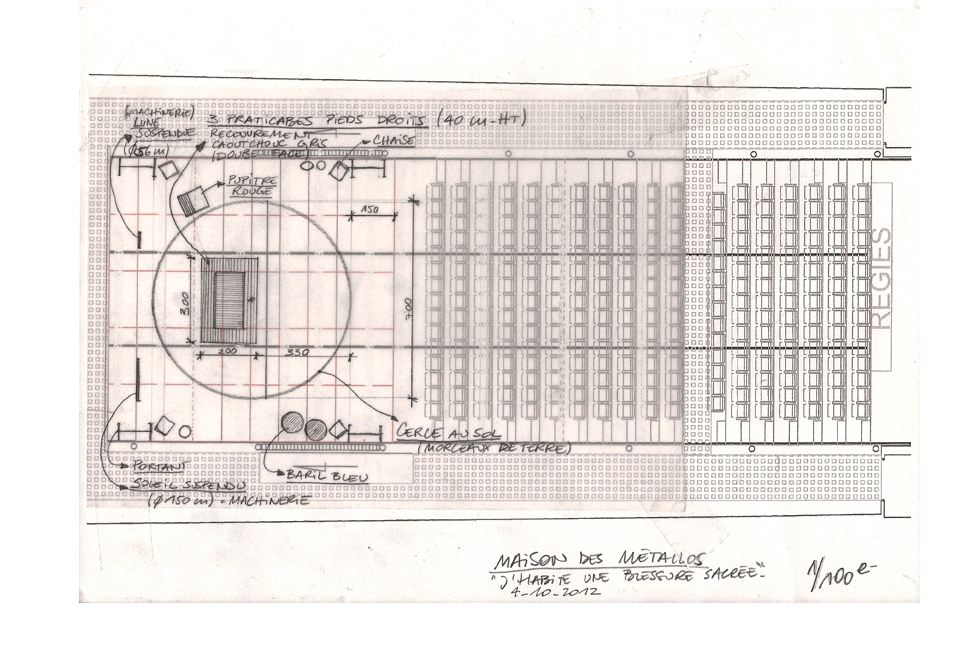 (MACHINERIE)
LUNE
SUSPENDUE
3 PRATICABLES PIEDS DROITS (40 cm-HT)
RECOUVREMENT
CAOUTCHOUC GRIS
(DOUBLE FACE)
CHAISE
PUPITRE
ROUGE
150
300
700
200
350
REGIES
CERCLE AU SOL
(MORCEAUX DE TERRE)
PORTANT
BARIL BLEU
SOLEIL SUSPENDU
(φ 150 cm) - MACHINERIE
MAISON DES METALLOS
"J'HABITE UNE BLESSURE SACRÉE"-
4-10-2012
1/100e-